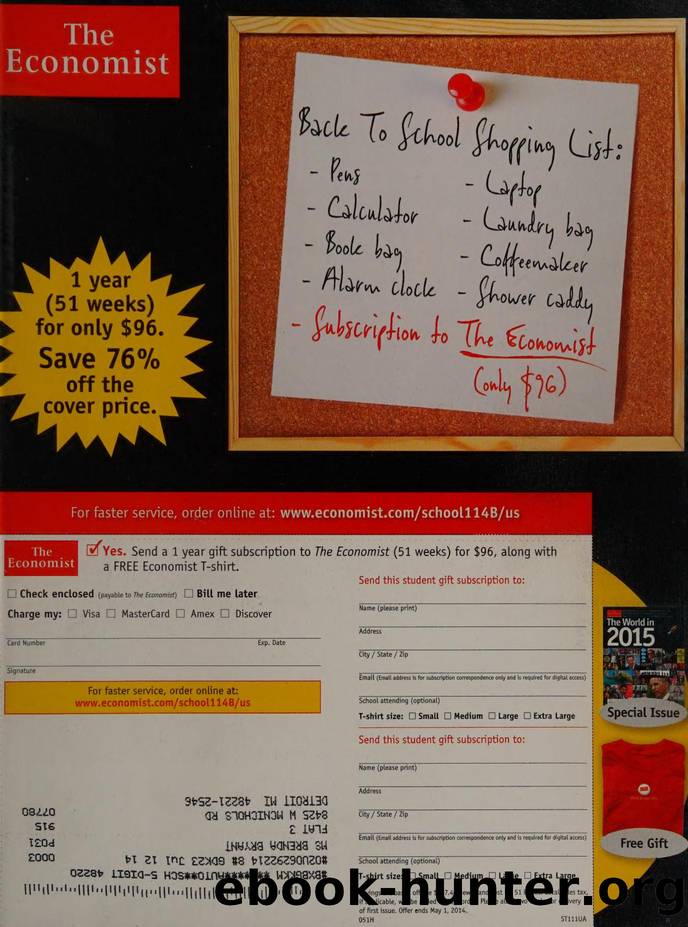 The
Economist
Back To School Shopping List:
- Pens
- Calculator
- Book bag
- Alarm clock
- Laptop
- Laundry bag
- Coffeemaker
- Shower caddy
- Subscription to The Economist
(only $96)
1 year
(51 weeks)
for only $96.
Save 76%
off the
cover price.
For faster service, order online at: www.economist.com/school114B/us
The
Economist
Yes. Send a 1 year gift subscription to The Economist (51 weeks) for $96, along with
a FREE Economist T-shirt.
Check enclosed (payable to The Economist) Bill me later
Charge my: Visa MasterCard Amex Discover
Card Number Exp. Date
Signature
For faster service, order online at:
www.economist.com/school114B/us
Send this student gift subscription to:
Name (please print)
Address
City / State / Zip
Email (Email address is for subscription correspondence only and is required for digital access)
School attending (optional)
T-shirt size: Small Medium Large Extra Large
Send this student gift subscription to:
Name (please print)
Address
City / State / Zip
Email (Email address is for subscription correspondence only and is required for digital access)
School attending (optional)
T-shirt size: Small Medium Large Extra Large
of first issue. Offer ends May 1, 2014.
051H ST111UA
The World in
2015
Special Issue
Free Gift
#BXBGGKM *********AUTO**SCH 5-DIGIT 48220
#02U0629221 4 8# 6DK23 Jul 12 14 0003
MS BRENDA BRYANT P031
FLAT 3 915
8425 W MCNICHOLS RD 07780
DETROIT MI 48221-2546
ebook-hunter.org